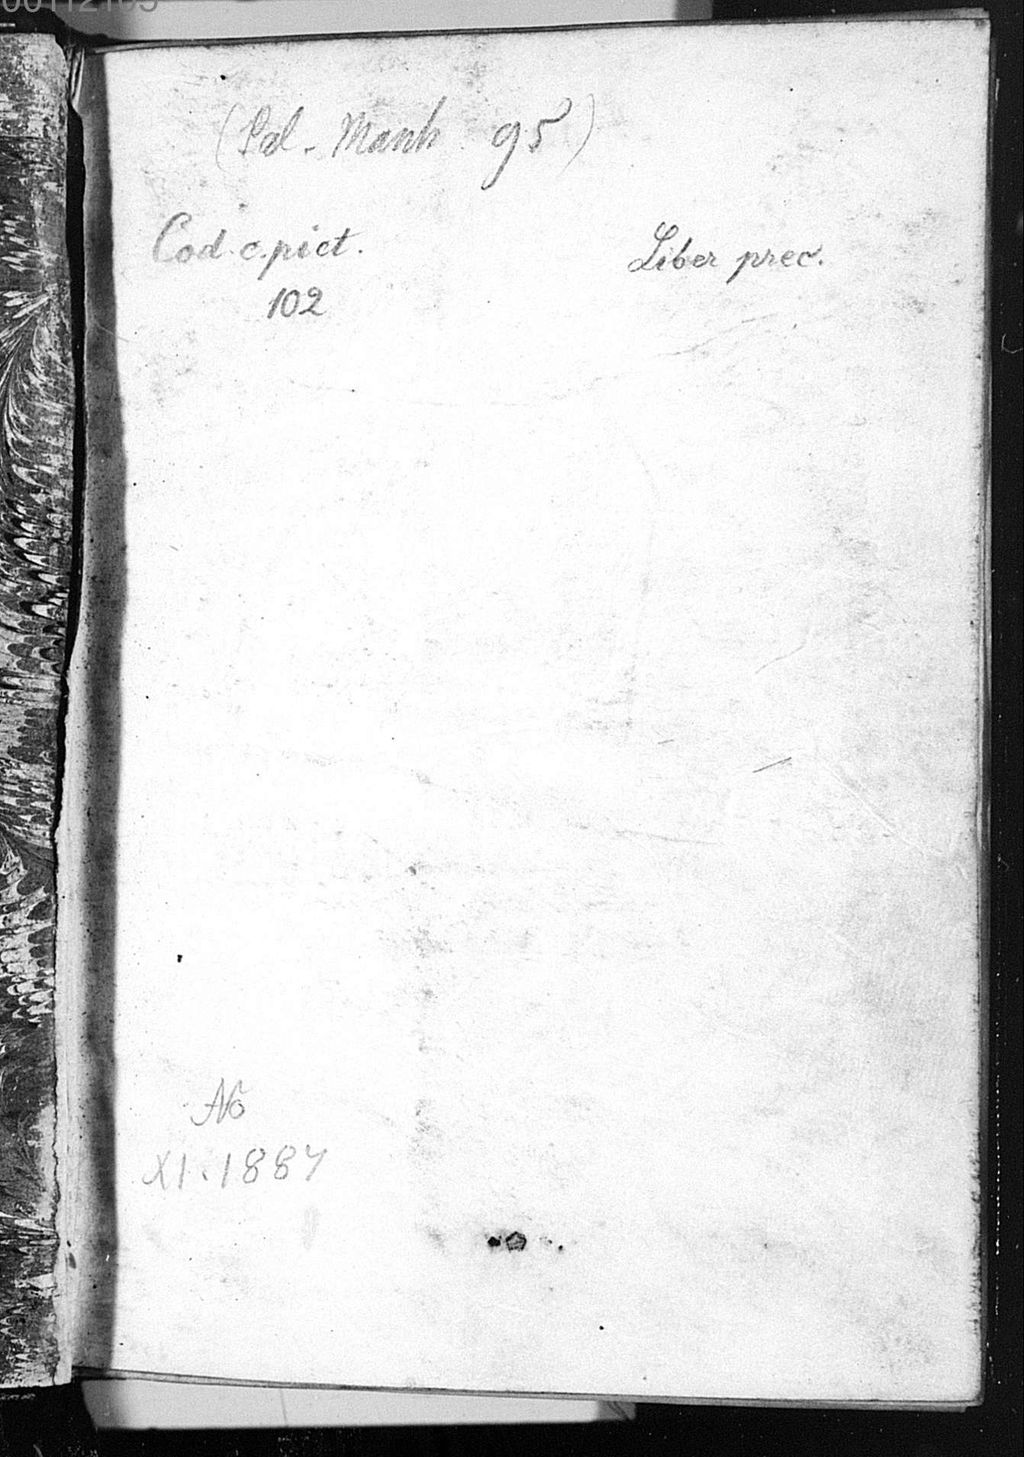 (Pal. Manh 95)
Cod. c. pict. Liber prec.
102
No
XI. 1887